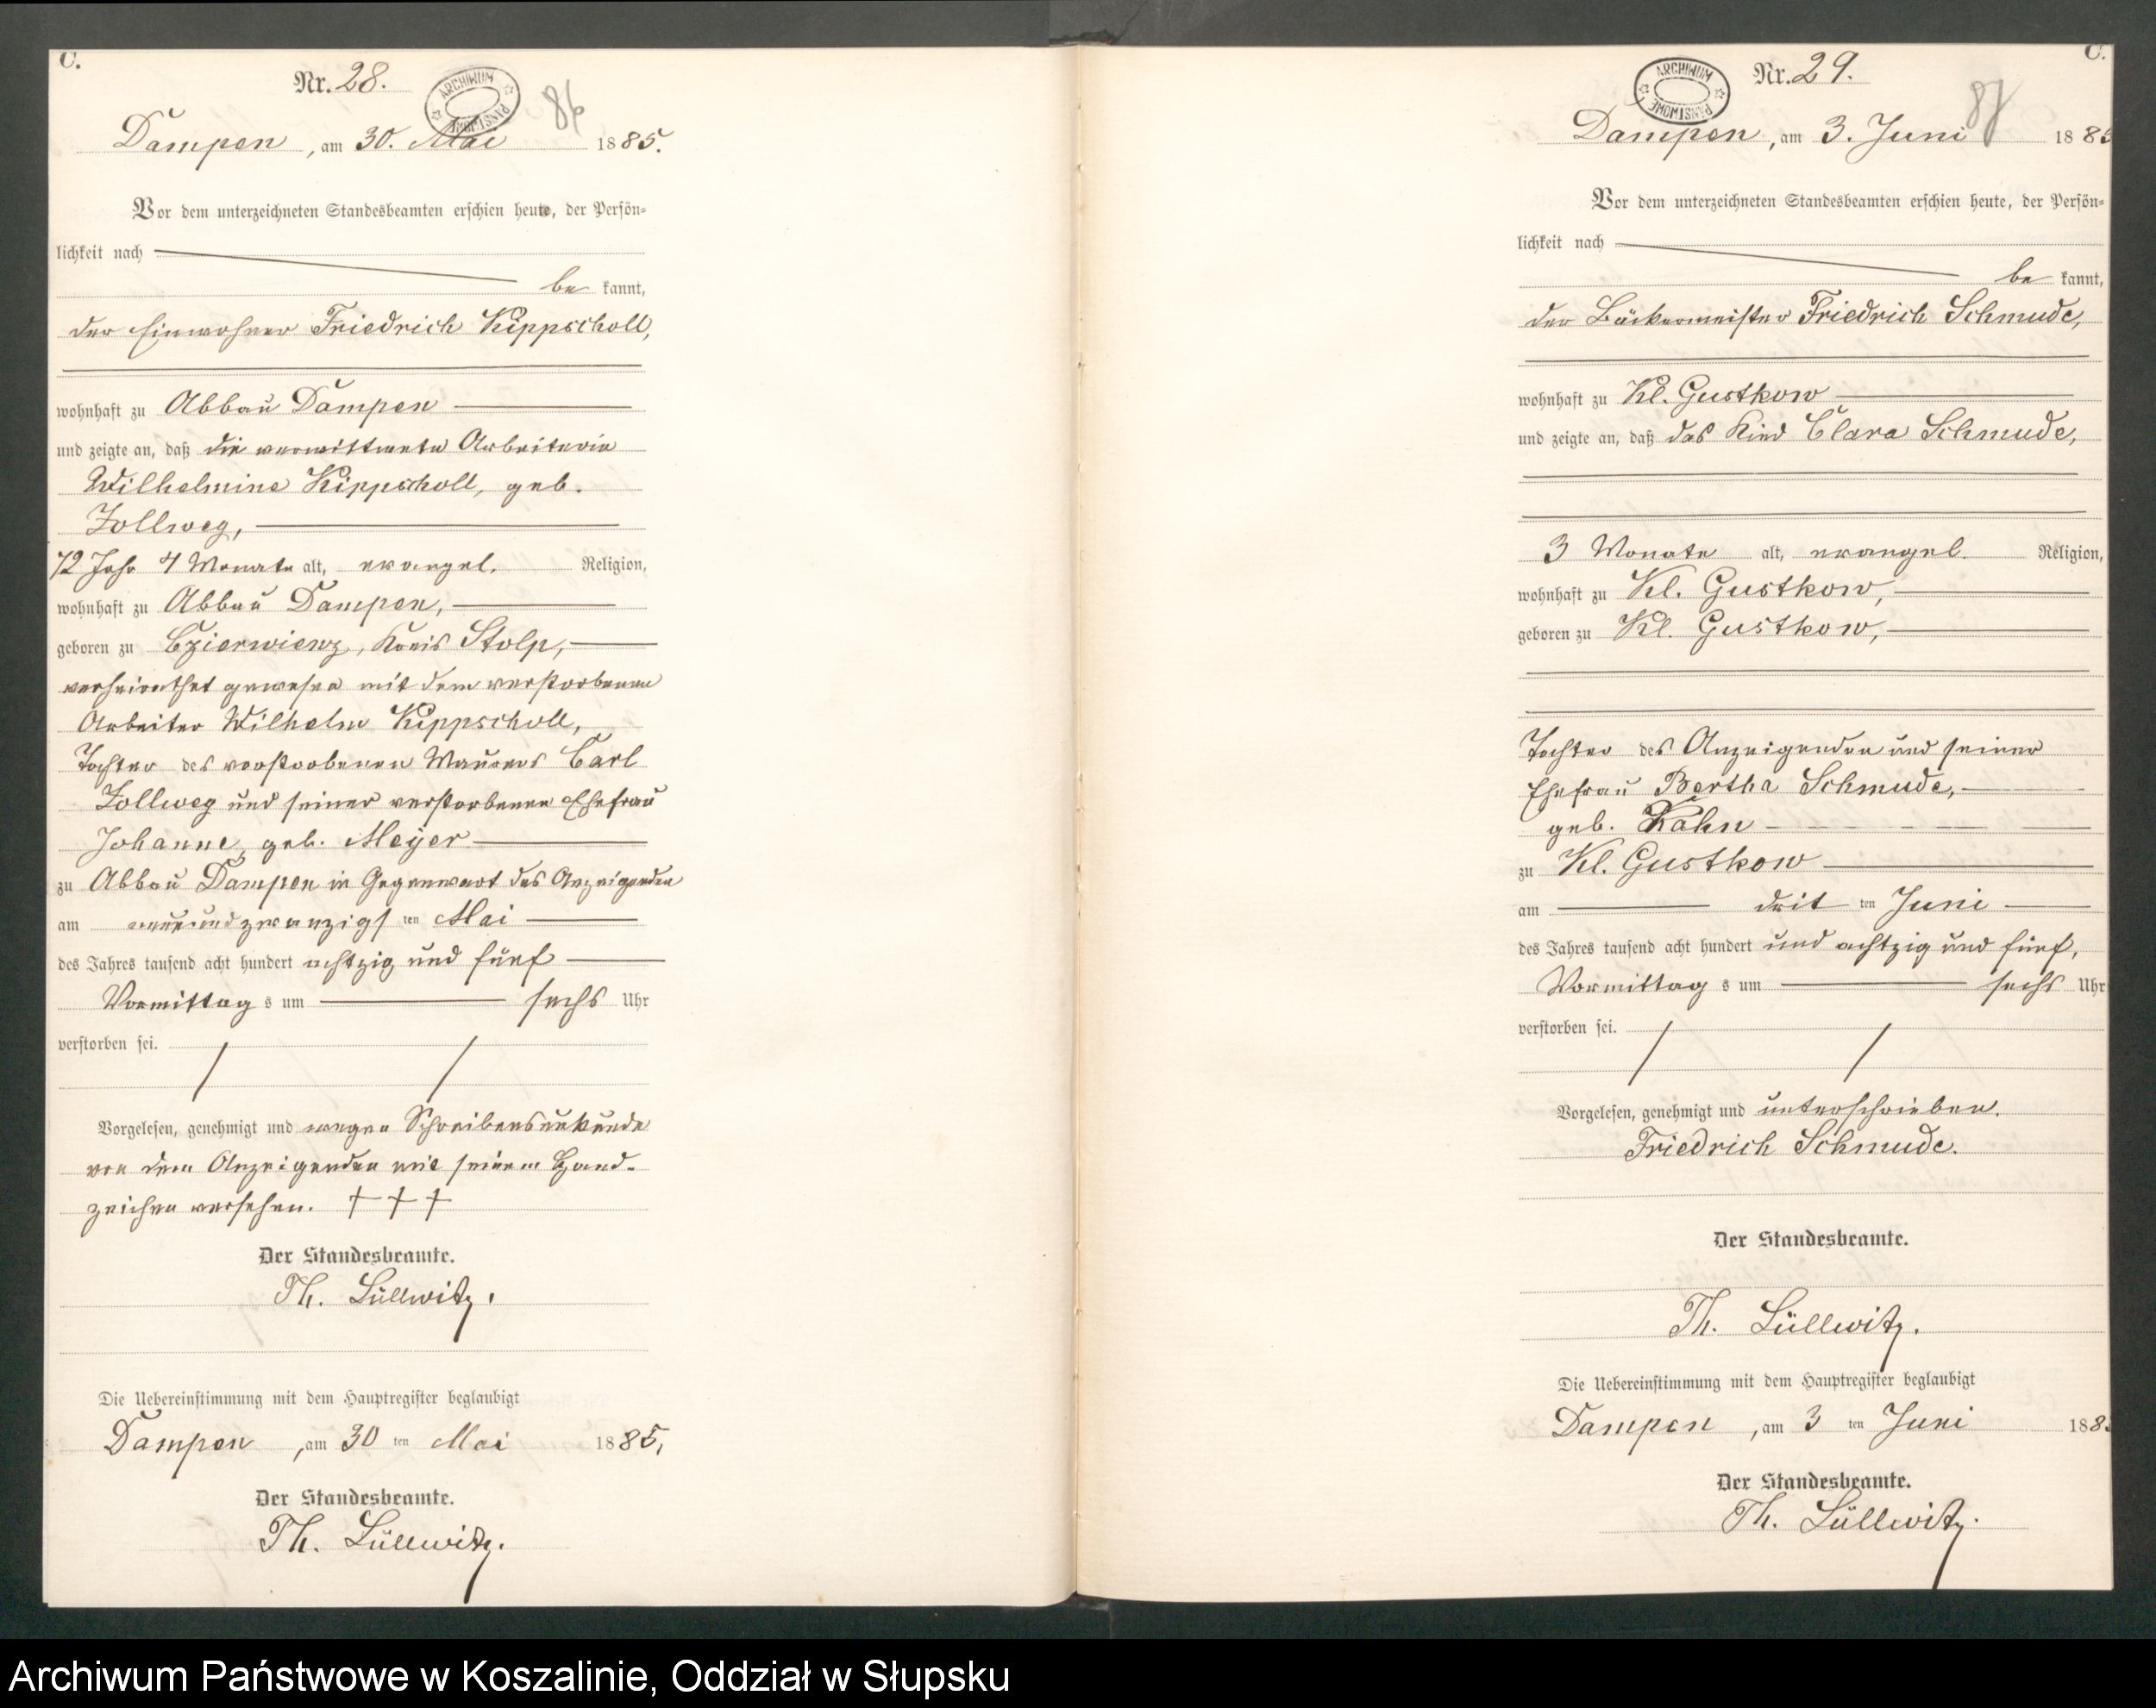 C.
Nr. 28.
ARCHIWUM PAŃSTWOWE
86
Dampen, am 30. Mai 1885.
Vor dem unterzeichneten Standesbeamten erschien heute, der Persön-
lichkeit nach
be kannt,
der Einwohner Friedrich Kippscholl,
wohnhaft zu Abbau Dampen
und zeigte an, daß die verwittwete Arbeiterin
Wilhelmine Kippscholl, geb.
Zollweg,
72 Jahr 4 Monate alt, evangel. Religion,
wohnhaft zu Abbau Dampen,
geboren zu Czierwienz, Kreis Stolp,
verheirathet gewesen mit dem verstorbenen
Arbeiter Wilhelm Kippscholl,
Tochter des verstorbenen Maurers Carl
Zollweg und seiner verstorbenen Ehefrau
Johanne, geb. Meyer
zu Abbau Dampen in Gegenwart des Anzeigenden
am neunundzwanzigs ten Mai
des Jahres tausend acht hundert achtzig und fünf
Vormittag s um sechs Uhr
verstorben sei.
Vorgelesen, genehmigt und wegen Schreibensunkunde
von dem Anzeigenden mit seinem Hand-
zeichen versehen. + + +
Der Standesbeamte.
Th. Lüllwitz.
Die Uebereinstimmung mit dem Hauptregister beglaubigt
Dampen, am 30 ten Mai 1885,
Der Standesbeamte.
Th. Lüllwitz.
C.
Nr. 29.
ARCHIWUM PAŃSTWOWE
87
Dampen, am 3. Juni 188
Vor dem unterzeichneten Standesbeamten erschien heute, der Persön-
lichkeit nach
be kannt,
der Bäckermeister Friedrich Schmude,
wohnhaft zu Kl. Gustkow
und zeigte an, daß das Kind Clara Schmude,
3 Monate alt, evangel. Religion,
wohnhaft zu Kl. Gustkow,
geboren zu Kl. Gustkow,
Tochter des Anzeigenden und seiner
Ehefrau Bertha Schmude,
geb. Hahn
zu Kl. Gustkow
am drit ten Juni
des Jahres tausend acht hundert und achtzig und fünf,
Vormittag s um sechs Uhr
verstorben sei.
Vorgelesen, genehmigt und unterschrieben.
Friedrich Schmude.
Der Standesbeamte.
Th. Lüllwitz.
Die Uebereinstimmung mit dem Hauptregister beglaubigt
Dampen, am 3 ten Juni 188
Der Standesbeamte.
Th. Lüllwitz.
Archiwum Państwowe w Koszalinie, Oddział w Słupsku